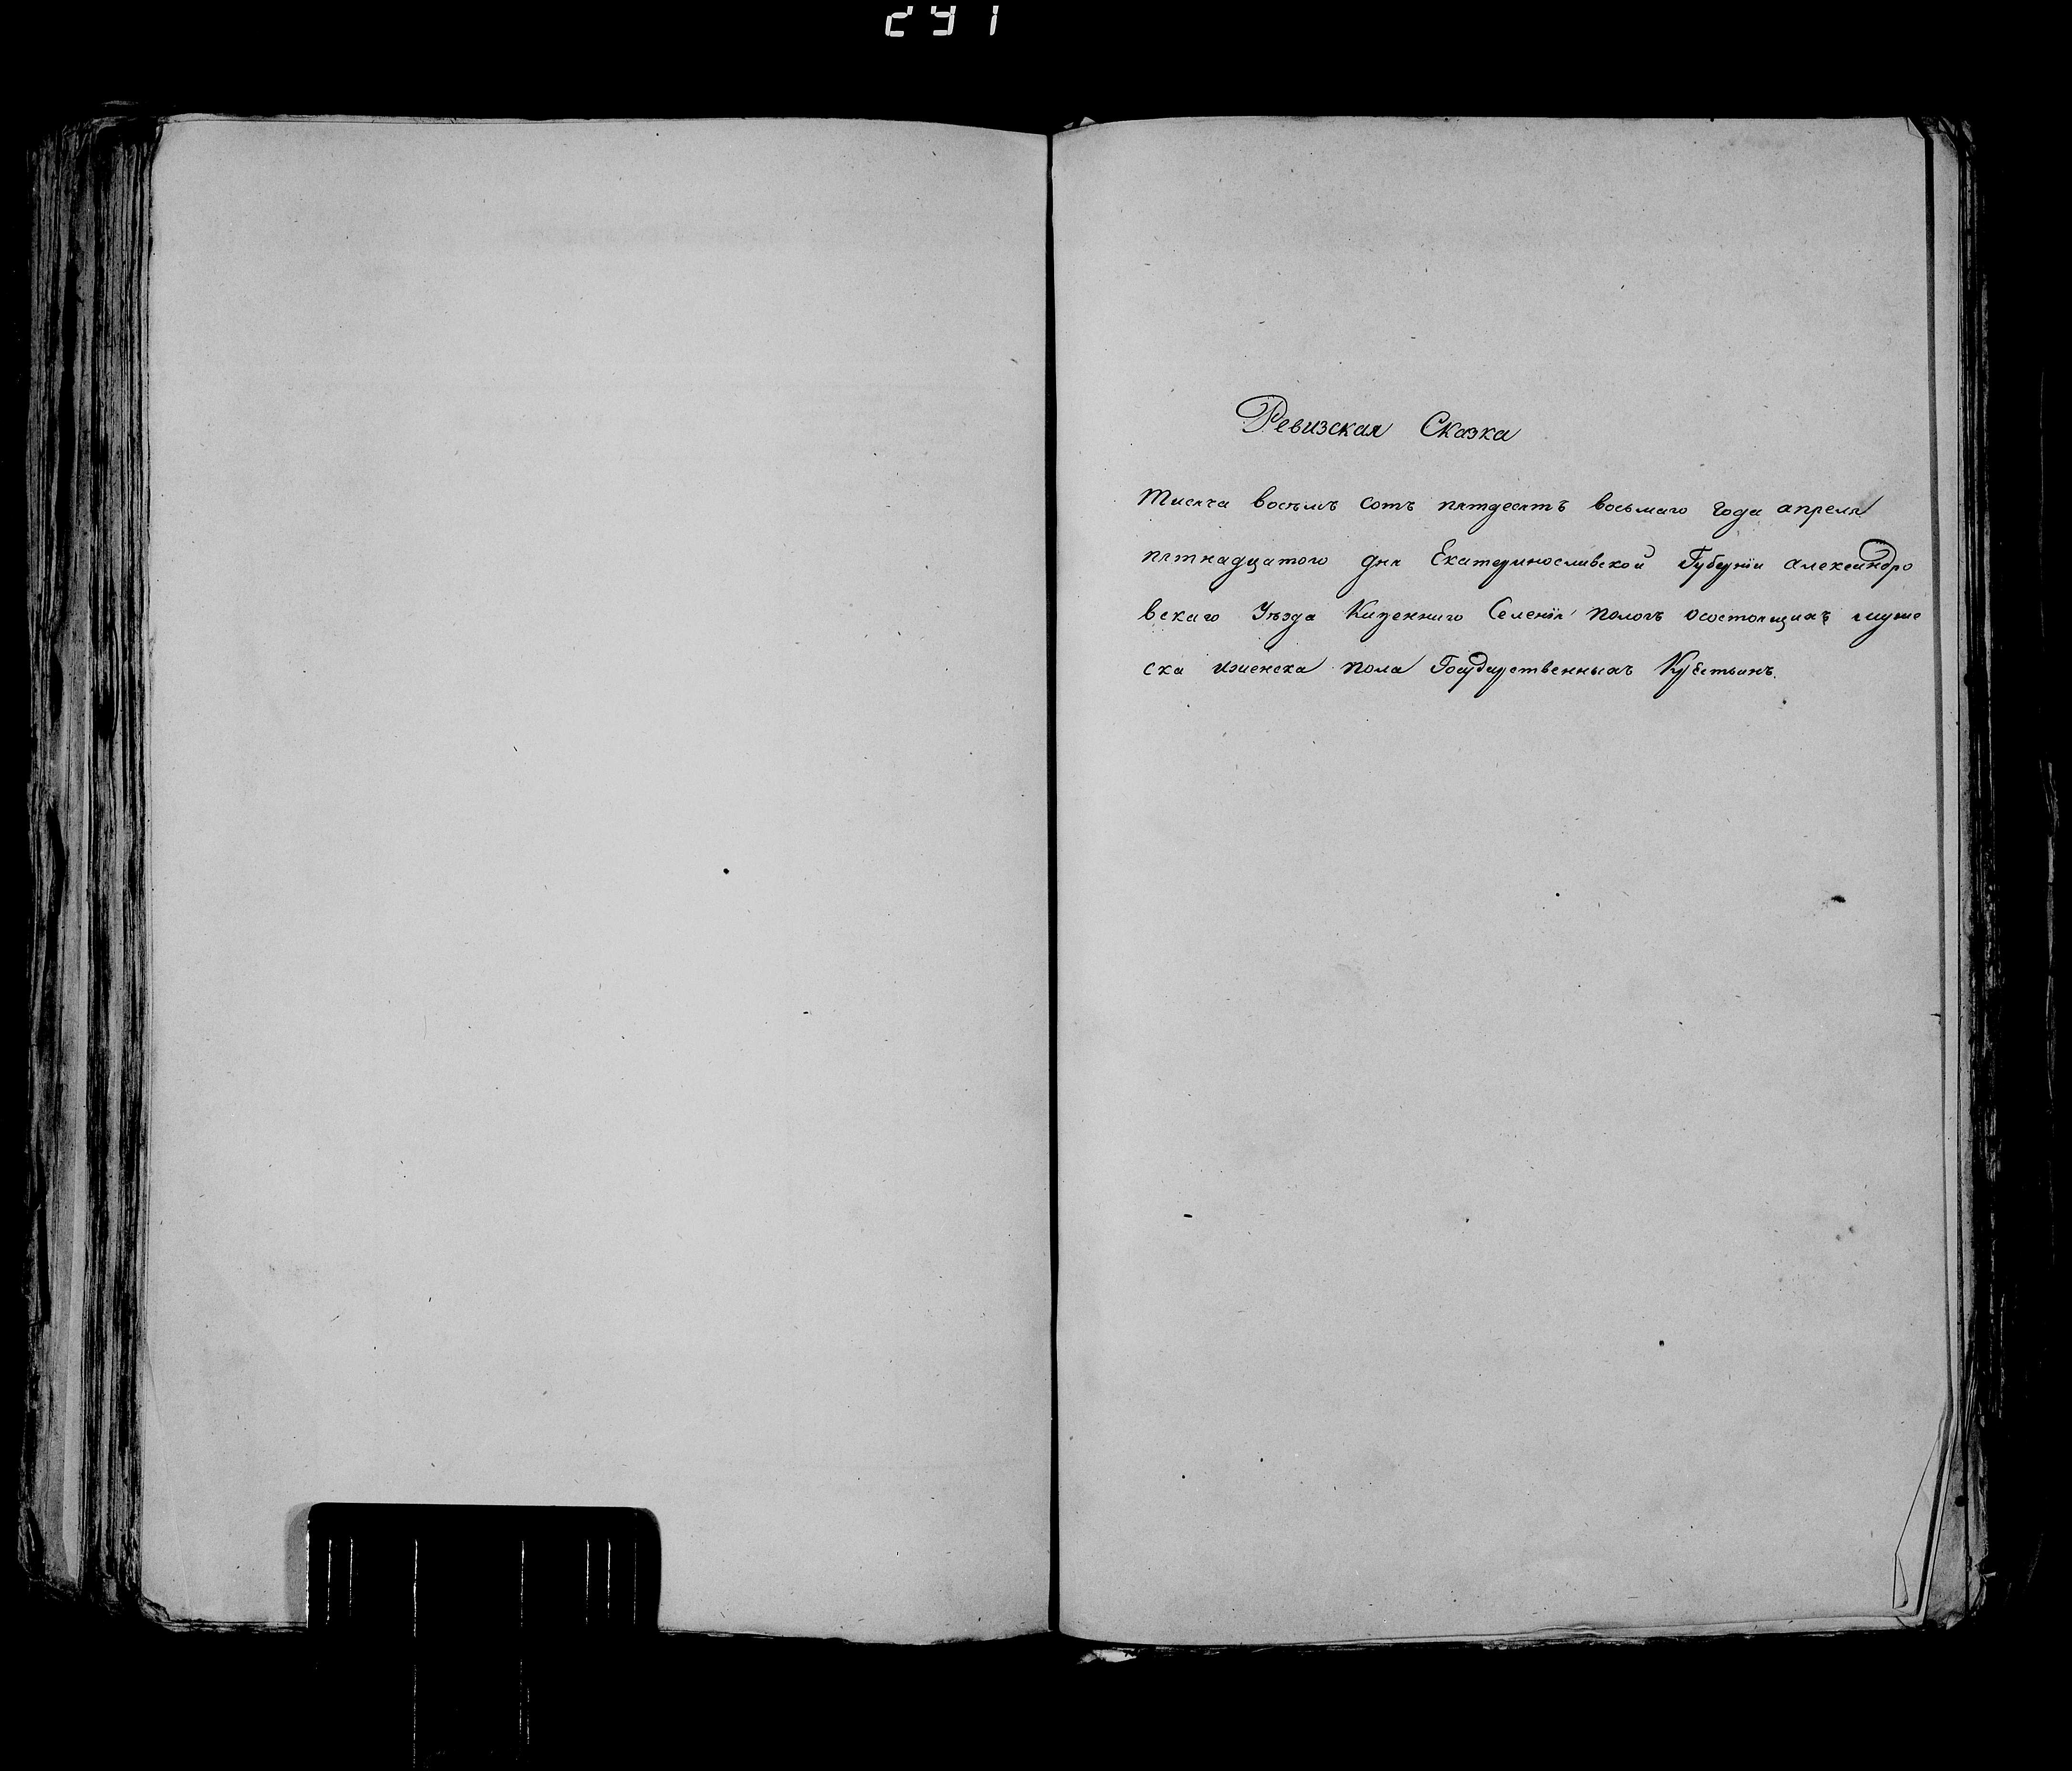 291
Ревизская Сказка
Тисяча восемъ сотъ пятдесятъ восьмаго года апреля
пятнадцатого дня Екатеринославской Губерніи александро
вскаго Уѣзда Казеннаго Селенія пологъ осостоящихъ муже
ска иженска пола Государственныхъ Крестьянъ.